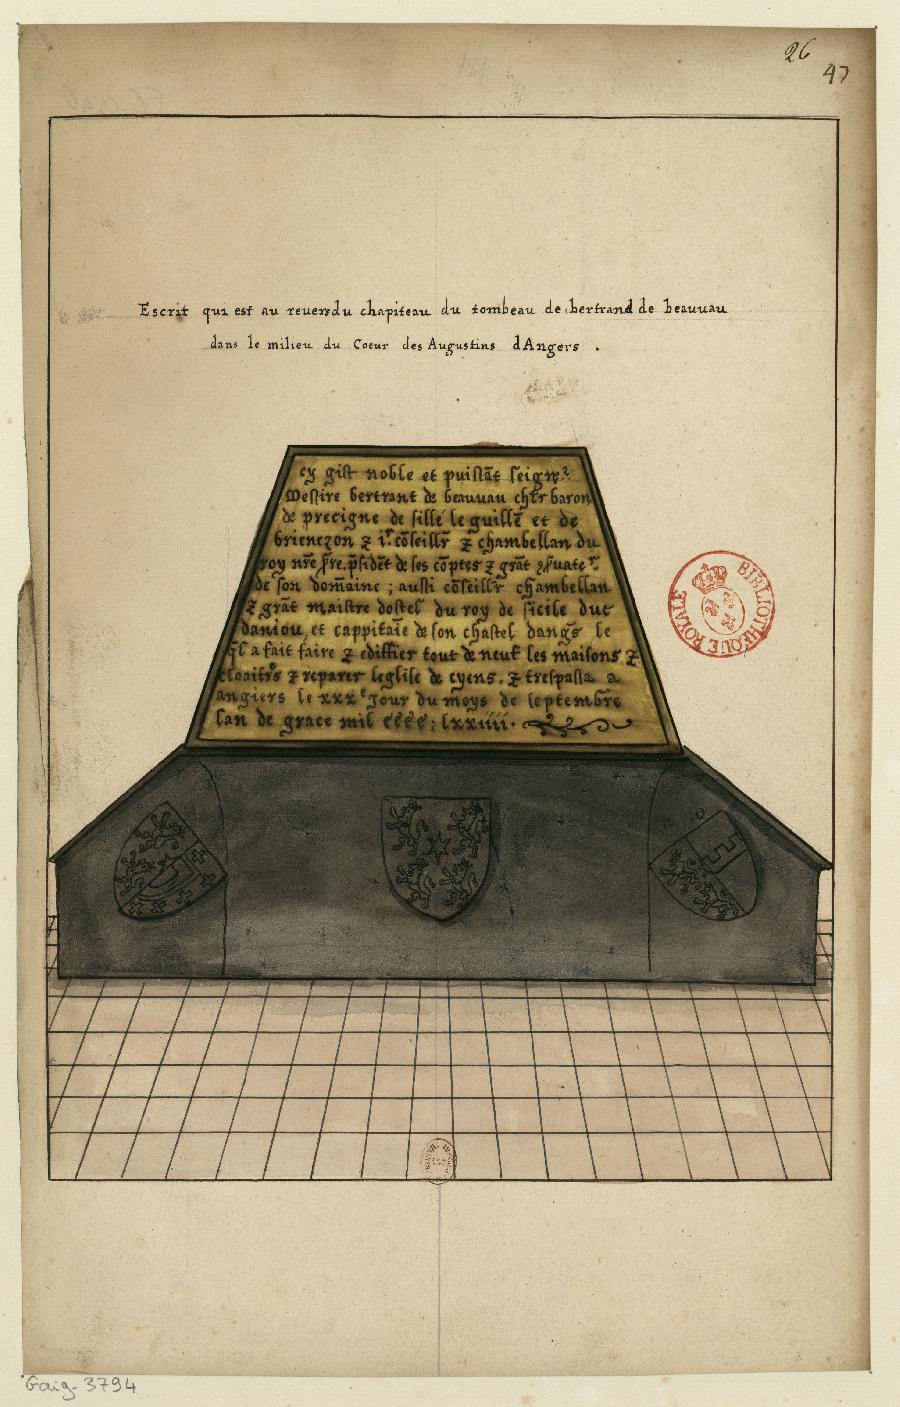 26
47
Escrit qui est au revers du chapiteau du tombeau de bertrand de beauuau
dans le milieu du Coeur des Augustins dAngers .
cy gist noble et puissāt seignr
Messire bertrant de beauuau chlr baron
de precigne de sille le guillē et de
brienczon & ir. cōseillr & chambellan du
roy nr̄e sr̄e. p̄sidēt de ses cōptes & grāt
de son domaīne ; aussi cōseillr chambellan
& grāt maistre dostel du roy de sicile duc
daniou, et cappitaīe de son chastel danḡs le
q̄l a fait faire & ediffier tout de neuf les maisons &
cloaitrs & reparer leglise de cyens. & trespassa a
angiers le xxxe Jour du moys de septembre
lan de grace mil cccc : lxxiiii.
BIBLIOTHEQUE ROYALE
Gaig. 3794